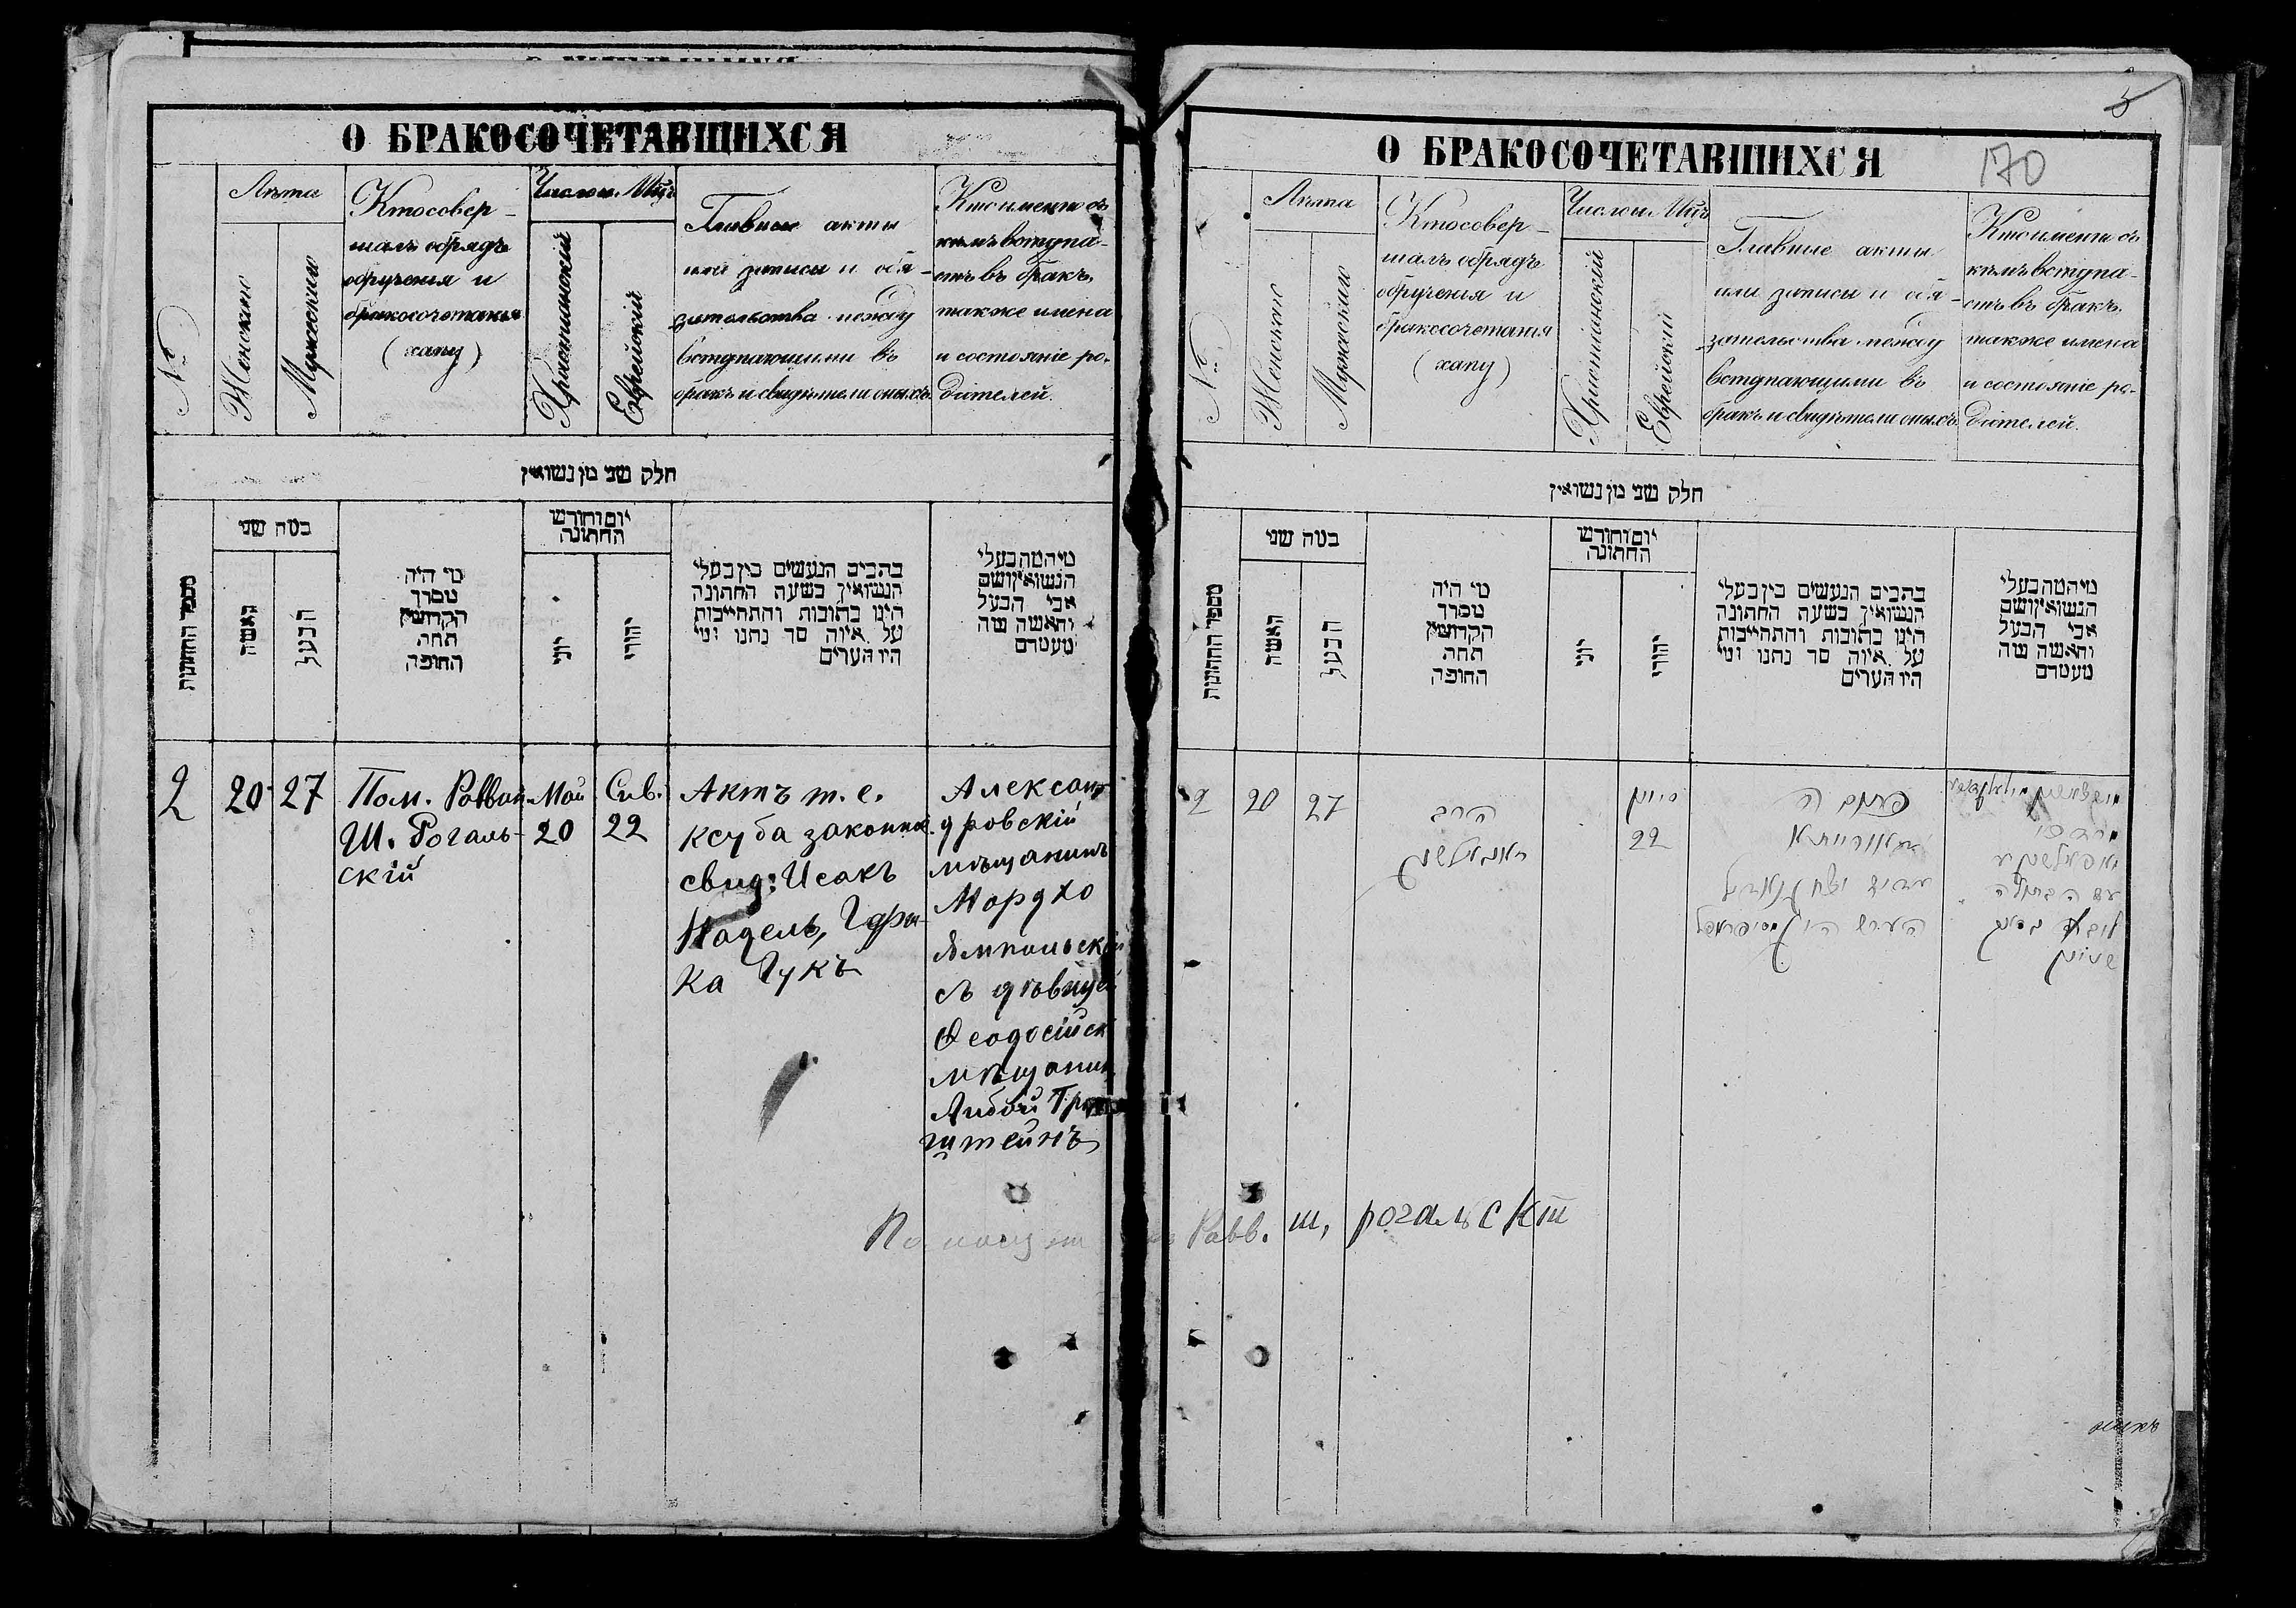 О БРАКОСОЧЕТАВШИХСЯ
№
Лѣта
Женскаго
Мужескаго
Кто совер-
шалъ обрядъ
обрученія и
бракосочетанія
(хапу)
Число и Мѣц.
Христіанскій
Еврейскій
Главные акты
или записи и обя-
зательства между
вступающими въ
бракъ и свидѣтели оныхъ
Кто именно съ
кѣмъ вступа-
етъ въ бракъ,
также имена
и состояніе ро-
дителей.
חלק שני מן נשואין
מספר החתונות
כמה שני
האשה
הבעל
מי היה
מסדר
הקדושין
תחת
החופה
יום וחודש
החתונה
יוני
יהודי
כתבים הנעשים בין בעלי
הנשואין בשעת החתונה
היינו כתובות והתחייבות
על איזה סך נתנו ומי
היו העדים
מי המה בעלי
הנשואין ושם
אבי הבעל
והאשה ומה
מעמדם
2
20
27
Пом. Раввин
Ш. Рогаль-
скій
Май
20
Сив.
22
Актъ т. е.
ксуба законная
свид: Исакъ
Надель,
ка Гукъ
Алексан-
дровскій
мѣщанинъ
Мордко
Ямпольскій
съ дѣвицей
Ѳеодосійск
мѣщанин
Либой
штейнъ
О БРАКОСОЧЕТАВШИХСЯ
170
№
Лѣта
Женскаго
Мужескаго
Кто совер-
шалъ обрядъ
обрученія и
бракосочетанія
(хапу)
Число и Мѣц.
Христіанскій
Еврейскій
Главные акты
или записи и обя-
зательства между
вступающими въ
бракъ и свидѣтели оныхъ
Кто именно съ
кѣмъ вступа-
етъ въ бракъ,
также имена
и состояніе ро-
дителей.
חלק שני מן נשואין
מספר החתונות
כמה שני
האשה
הבעל
מי היה
מסדר
הקדושין
תחת
החופה
יום וחודש
החתונה
יוני
יהודי
כתבים הנעשים בין בעלי
הנשואין בשעת החתונה
היינו כתובות והתחייבות
על איזה סך נתנו ומי
היו העדים
מי המה בעלי
הנשואין ושם
אבי הבעל
והאשה ומה
מעמדם
2
20
27
הרב
ראגאלסקי
סיון
22
דאורייתא
מרדכי
יאמפאלסקי
עם הבתולה
שטיין
Помощн Равв. Ш. Рогальскій